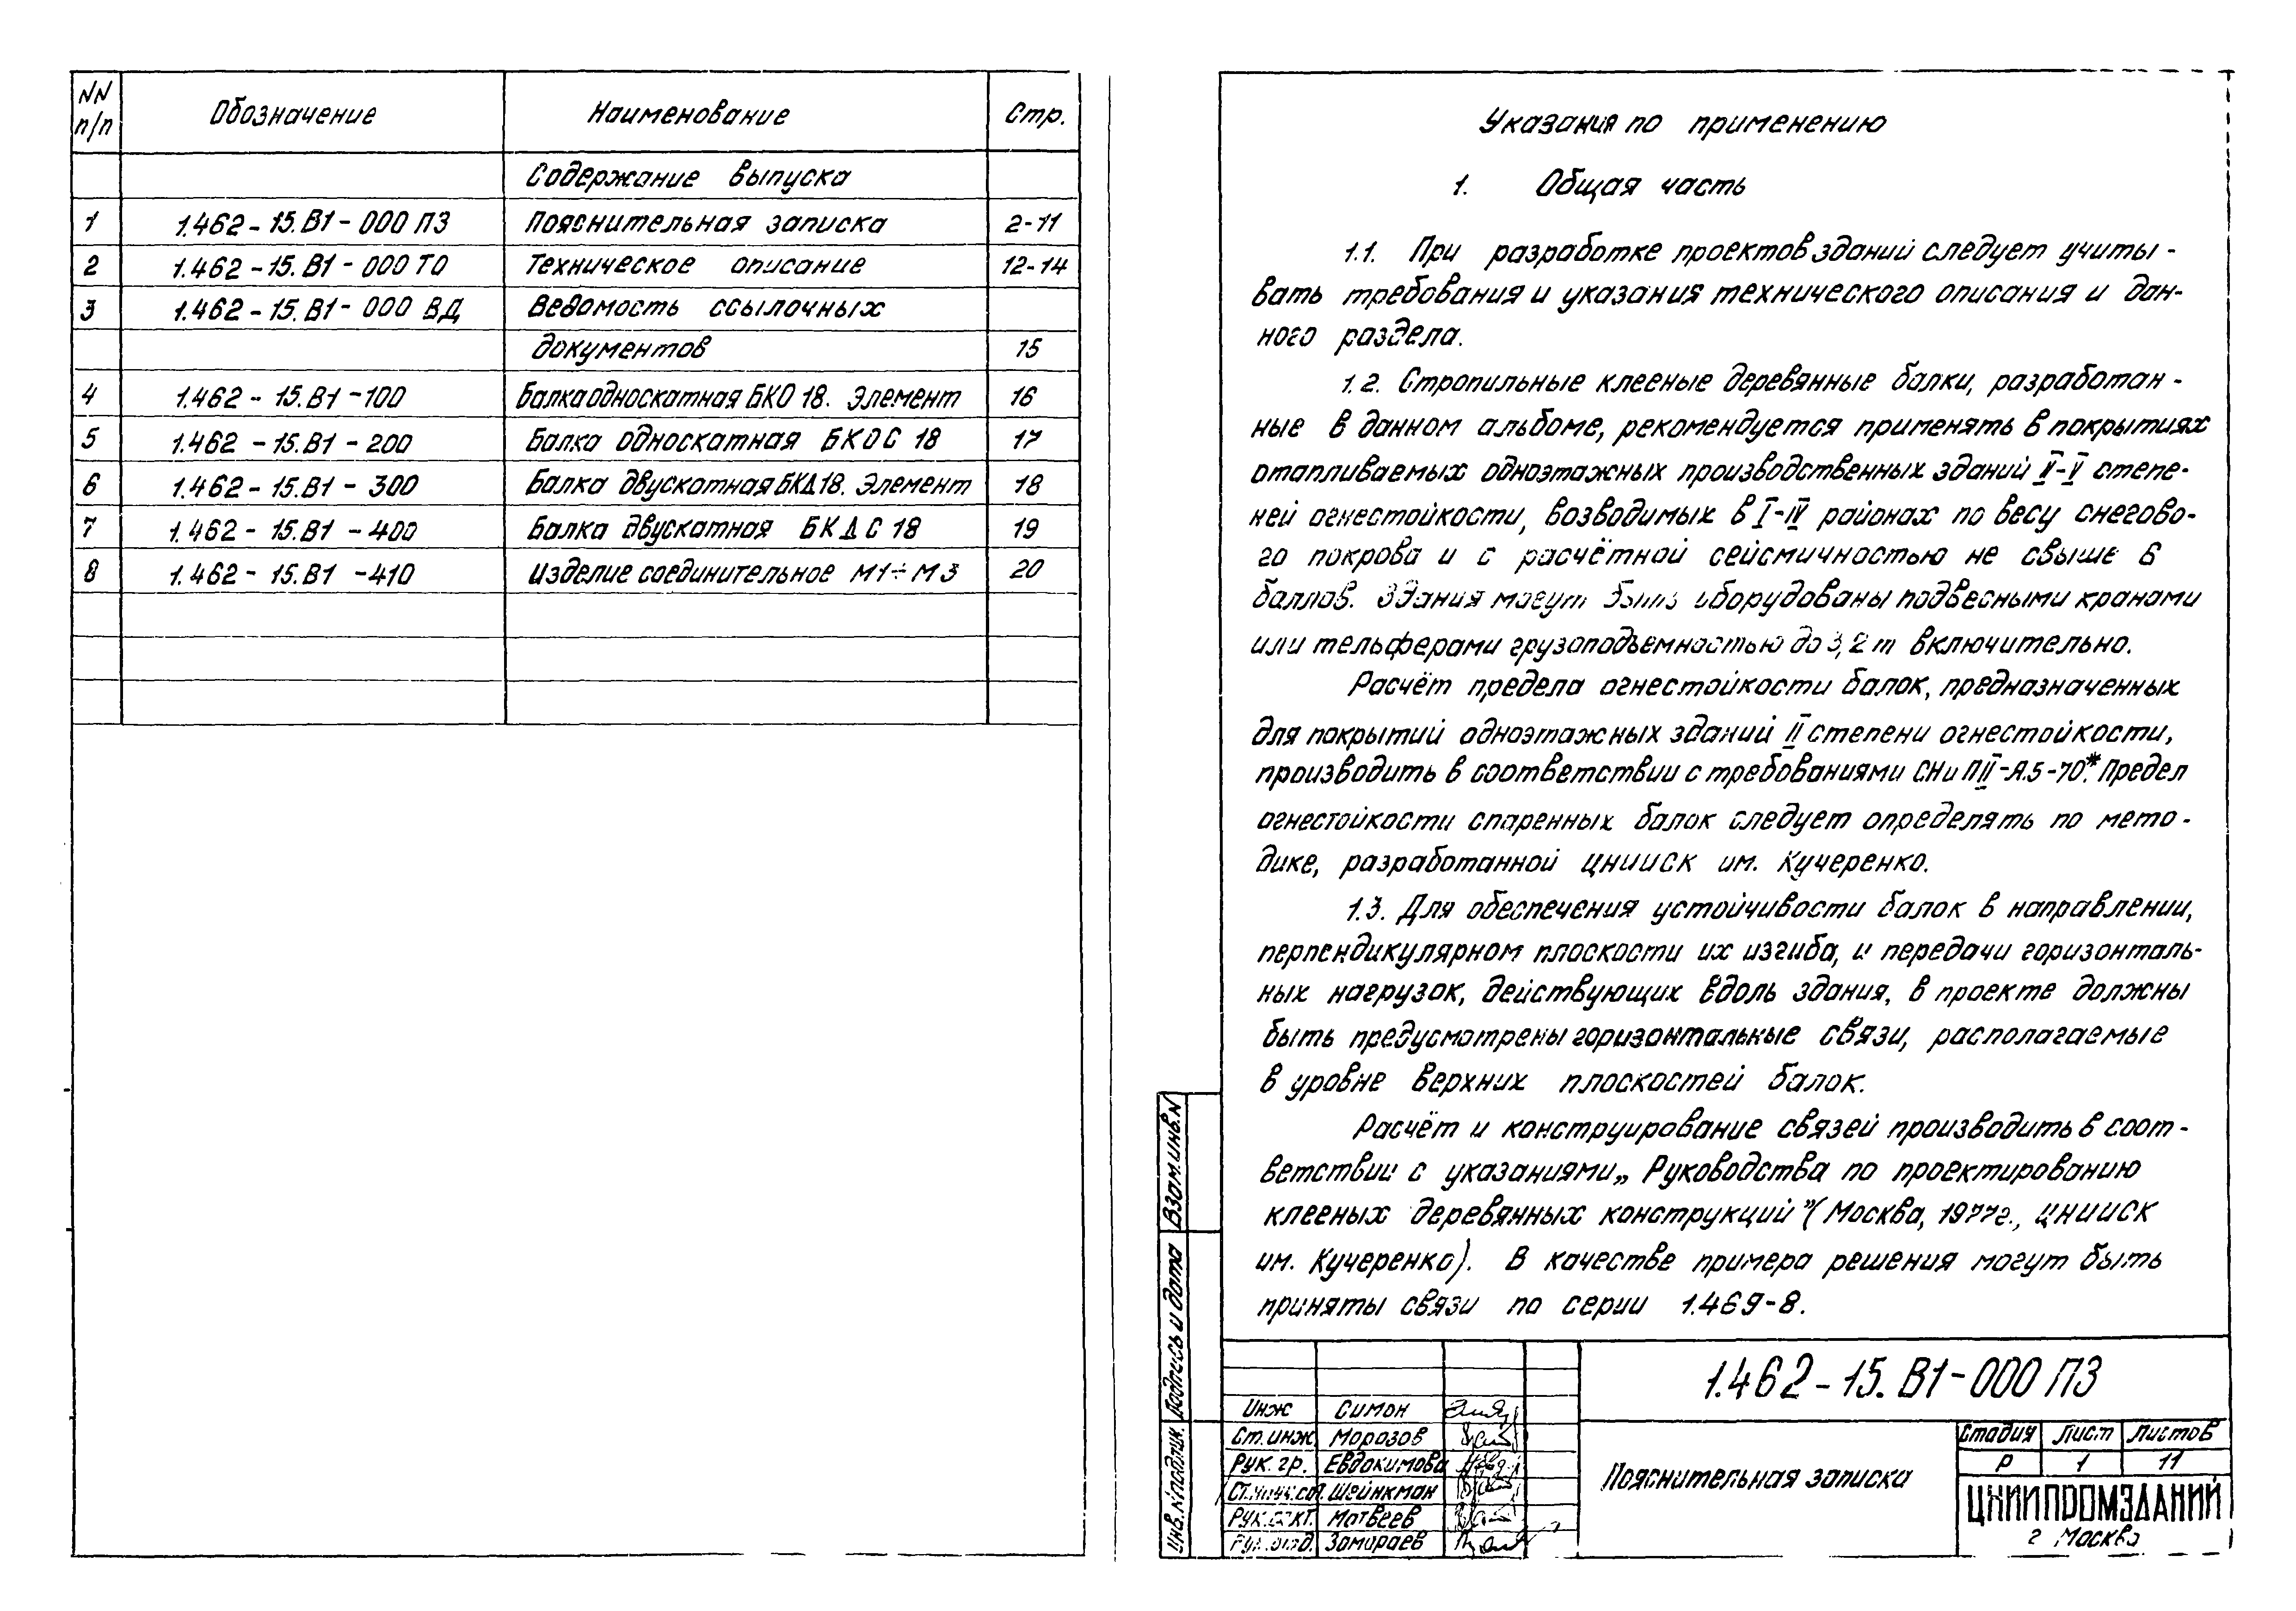 NN п/п Обозначение Наименование Стр.
Содержание выпуска
1 1.462-15.В1-000 ПЗ Пояснительная записка 2-11
2 1.462-15.В1-000 ТО Техническое описание 12-14
3 1.462-15.В1-000 ВД Ведомость ссылочных
документов 15
4 1.462-15.В1-100 Балка односкатная БКО 18. Элемент 16
5 1.462-15.В1-200 Балка односкатная БКОС 18 17
6 1.462-15.В1-300 Балка двускатная БКД 18. Элемент 18
7 1.462-15.В1-400 Балка двускатная БКДС 18 19
8 1.462-15.В1-410 Изделие соединительное М1÷М3 20
Указания по применению
1. Общая часть
1.1. При разработке проектов зданий следует учиты-
вать требования и указания технического описания и дан-
ного раздела.
1.2. Стропильные клееные деревянные балки, разработан-
ные в данном альбоме, рекомендуется применять в покрытиях
отапливаемых одноэтажных производственных зданий II-V степе-
ней огнестойкости, возводимых в I-IV районах по весу снегово-
го покрова и с расчётной сейсмичностью не свыше 6
баллов. Здания могут быть оборудованы подвесными кранами
или тельферами грузоподъемностью до 3,2 т включительно.
Расчёт предела огнестойкости балок, предназначенных
для покрытий одноэтажных зданий II степени огнестойкости,
производить в соответствии с требованиями СНиП II-А.5-70*. Предел
огнестойкости спаренных балок следует определять по мето-
дике, разработанной ЦНИИСК им. Кучеренко.
1.3. Для обеспечения устойчивости балок в направлении,
перпендикулярном плоскости их изгиба, и передачи горизонталь-
ных нагрузок, действующих вдоль здания, в проекте должны
быть предусмотрены горизонтальные связи, располагаемые
в уровне верхних плоскостей балок.
Расчёт и конструирование связей производить в соот-
ветствии с указаниями „Руководства по проектированию
клееных деревянных конструкций” (Москва, 1977г., ЦНИИСК
им. Кучеренко). В качестве примера решения могут быть
приняты связи по серии 1.469-8.
Взам.инв.N
Подпись и дата
Инв.N подлик.
1.462-15.В1-000 ПЗ
Инж Симон
Ст.инж Морозов
Рук.гр. Евдокимова
Шейнкман
Матвеев
Замараев
Пояснительная записка
Стадия Лист Листов
Р 1 11
ЦНИИПРОМЗДАНИЙ
г Москва